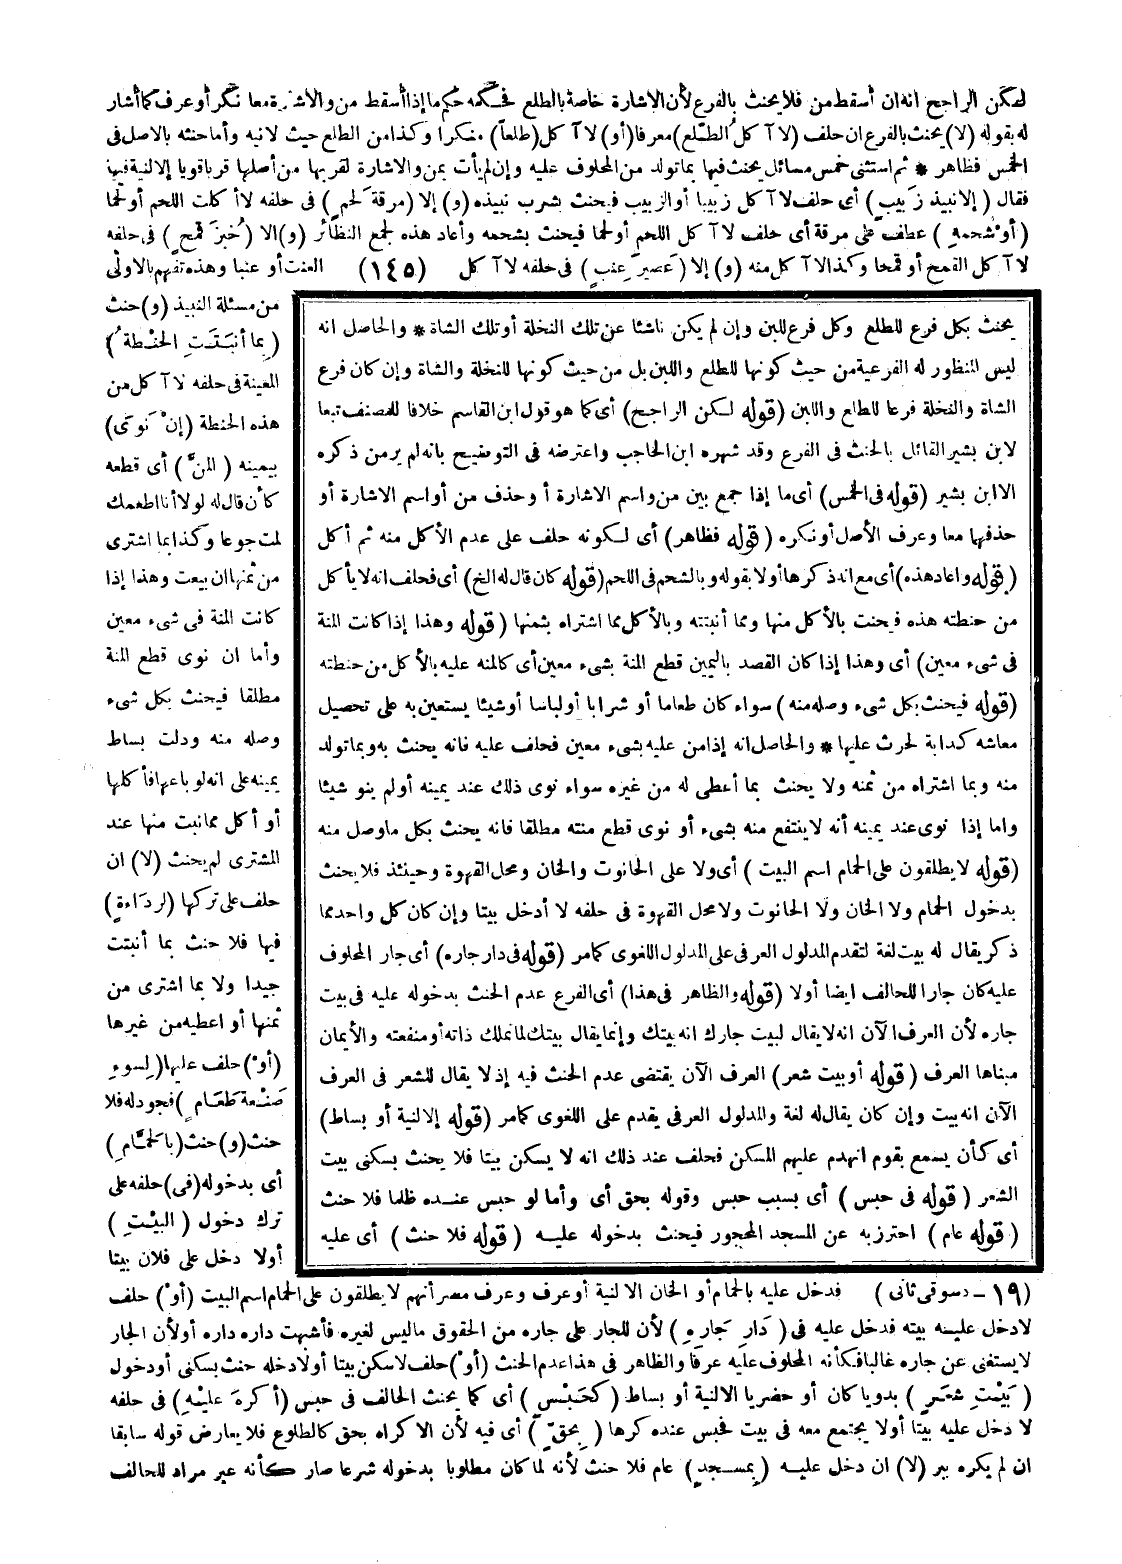 لكن الراجح انه ان أسقط من فلا يحنث بالفرع لأن الاشارة خاصة بالطلع فحكمه حكم ما إذا أسقط من والاشارة معا نكر أو عرف كما أشار
له بقوله (لا) يحنث بالفرع ان حلف (لا آكل الطَّلع) معرفا (أو) لا آكل (طلعاً) منكرا وكذا من الطلع حيث لا نية وأما حنثه بالاصل فى
الخمس فظاهر * ثم استثنى خمس مسائل يحنث فيها بما تولد من المحلوف عليه وإن لم يأت بمن والاشارة لقربها من أصلها قربا قويا إلا لنية فيها
فقال (إلا نبيذَ زَبيبٍ) أى حلف لا آكل زبيبا أو الزبيب فيحنث بشرب نبيذه (و) إلا (مرقةَ لحمٍ) فى حلفه لا أكلت اللحم أو لحما
(أو شحمهِ) عطف على مرقة أى حلف لا آكل اللحم أو لحما فيحنث بشحمه وأعاد هذه لجمع النظائر (و) إلا (خُبزَ قمحٍ) فى حلفه
لا آكل القمح أو قمحا وكذا لا آكل منه (و) إلا (عصيرَ عنبٍ) فى حلفه لا آكل (١٤٥) العنب أو عنبا وهذه تفهم بالاولى
من مسئلة النبيذ (و) حنث
(بما أنبتَتِ الحنْطةُ)
المعينة فى حلفه لا آكل من
هذه الحنطة (إنْ نَوَى)
بيمينه (المنَّ) أى قطعه
كأن قال له لولا أنا اطعمك
لمت جوعا وكذا بما اشترى
من ثمنها ان بيعت وهذا إذا
كانت المنة فى شىء معين
وأما ان نوى قطع المنة
مطلقا فيحنث بكل شىء
وصله منه ودلت بساط
يمينه على انه لو باعها فأكلها
أو أكل مما نبت منها عند
المشترى لم يحنث (لا) ان
حلف على تركها (لرداءةٍ)
فيها فلا حنث بما أنبتت
جيدا ولا بما اشترى من
ثمنها أو اعطيه من غيرها
(أوْ) حلف عليها (لِسوءِ
صَنْعة طَعامٍ) فجود له فلا
حنث (و) حنث (بالحمَّامِ)
أى بدخوله (فى) حلفه على
ترك دخول (البيْتِ)
أولا دخل على فلان بيتا
يحنث بكل فرع للطلع وكل فرع للبن وإن لم يكن ناشئا عن تلك النخلة أو تلك الشاة * والحاصل انه
ليس المنظور له الفرعية من حيث كونها للطلع واللبن بل من حيث كونها للنخلة والشاة وإن كان فرع
الشاة والنخلة فرعا للطلع واللبن (قوله لكن الراجح) أى كما هو قول ابن القاسم خلافا للمصنف تبعا
لابن بشير القائل بالحنث فى الفرع وقد شهره ابن الحاجب واعترضه فى التوضيح بانه لم ير من ذكره
الا ابن بشير (قوله فى الخمس) أى ما إذا جمع بين من واسم الاشارة أو حذف من أو اسم الاشارة أو
حذفها معا وعرف الأصل أو نكره (قوله فظاهر) أى لكونه حلف على عدم الأكل منه ثم أكل
(قوله واعاد هذه) أى مع انه ذكرها أولا بقوله وبالشحم فى اللحم (قوله كان قال له الخ) أى فحلف انه لا يأكل
من حنطته هذه فيحنث بالأكل منها ومما أنبتته وبالأكل مما اشتراه بثمنها (قوله وهذا إذا كانت المنة
فى شىء معين) أى وهذا إذا كان القصد باليمين قطع المنة بشىء معين أى كالمنه عليه بالأكل من حنطته
(قوله فيحنث بكل شىء وصله منه) سواء كان طعاما أو شرابا أو لباسا أو شيئا يستعين به على تحصيل
معاشه كدابة لحرث عليها * والحاصل انه إذا من عليه بشىء معين فحلف عليه فانه يحنث به وبما تولد
منه وبما اشتراه من ثمنه ولا يحنث بما أعطى له من غيره سواء نوى ذلك عند يمينه أو لم ينو شيئا
واما إذا نوى عند يمينه أنه لا ينتفع منه بشىء أو نوى قطع منته مطلقا فانه يحنث بكل ما وصل منه
(قوله لا يطلقون على الحمام اسم البيت) أى ولا على الحانوت والخان ومحل القهوة وحينئذ فلا يحنث
بدخول الحمام ولا الخان ولا الحانوت ولا محل القهوة فى حلفه لا أدخل بيتا وإن كان كل واحد مما
ذكر يقال له بيت لغة لتقدم المدلول العرفى على المدلول اللغوى كما مر (قوله فى دار جاره) أى جار المحلوف
عليه كان جارا للحالف ايضا أولا (قوله والظاهر فى هذا) أى الفرع عدم الحنث بدخوله عليه فى بيت
جاره لأن العرف الآن انه لا يقال لبيت جارك انه بيتك وإنما يقال بيتك لما تملك ذاته أو منفعته والأيمان
مبناها العرف (قوله أو بيت شعر) العرف الآن يقتضى عدم الحنث فيه إذ لا يقال للشعر فى العرف
الآن انه بيت وإن كان يقال له لغة والمدلول العرفى يقدم على اللغوى كما مر (قوله إلا لنية أو بساط)
أى كأن يسمع بقوم انهدم عليهم المسكن فحلف عند ذلك انه لا يسكن بيتا فلا يحنث بسكنى بيت
الشعر (قوله فى حبس) أى بسبب حبس وقوله بحق أى وأما لو حبس عنده ظلما فلا حنث
(قوله عام) احترز به عن المسجد المحجور فيحنث بدخوله عليه (قوله فلا حنث) أى عليه
(١٩ - دسوقى ثانى) فدخل عليه بالحمام أو الخان الا لنية أو عرف وعرف مصر أنهم لا يطلقون على الحمام اسم البيت (أوْ) حلف
لا دخل عليه بيته فدخل عليه فى (دَارِ جَارهِ) لأن للجار على جاره من الحقوق ما ليس لغيره فأشبهت داره داره أو لأن الجار
لا يستغنى عن جاره غالبا فكأنه المحلوف عليه عرفا والظاهر فى هذا عدم الحنث (أوْ) حلف لا سكن بيتا أو لا دخله حنث بسكنى أو دخول
(بَيْتِ شعَرٍ) بدويا كان أو حضريا الا لنية أو بساط (كحَبْسٍ) أى كما يحنث الحالف فى حبس (أكرهَ عليْهِ) فى حلفه
لا دخل عليه بيتا أو لا يجتمع معه فى بيت فحبس عنده كرها (بِحقٍّ) أى فيه لأن الاكراه بحق كالطلوع فلا يعارض قوله سابقا
ان لم يكره ببر (لا) ان دخل عليه (بِمسجدٍ) عام فلا حنث لأنه لما كان مطلوبا بدخوله شرعا صار كأنه غير مراد للحالف